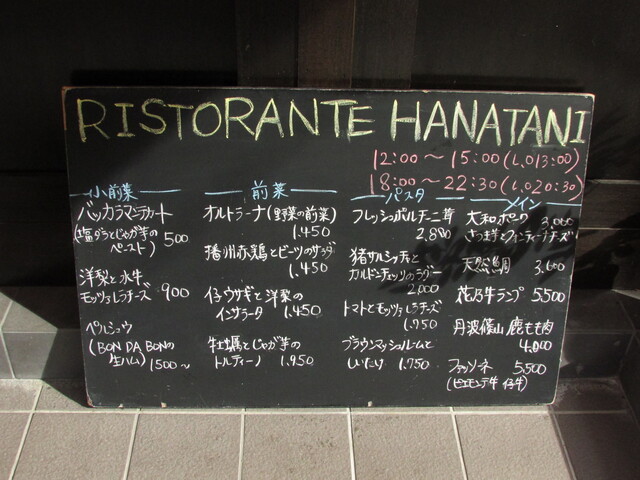 RISTORANTE HANATANI
12:00 〜 15:00 (L.O13:00)
18:00 〜 22:30 (L.O20:30)
小前菜
バッカラマンテカート
(塩ダラとじゃが芋の
ペースト) 500
洋梨と水牛
モッツァレラチーズ 900
ペルシュウ
(BON DA BONの
生ハム) 1500〜
前菜
オルトラーナ(野菜の前菜)
1.450
播州赤鶏とビーツのサラダ
1.450
仔ウサギと洋梨の
インサラータ 1.450
牡蠣とじゃが芋の
トルティーノ 1.950
パスタ
フレッシュポルチーニ茸
2,880
猪サルシッチャと
カルドンチェッリのラグー
2,000
トマトとモッツァレラチーズ
1.750
ブラウンマッシュルームと
しいたけ 1.750
メイン
大和ポーク 3,000
さつま芋とフォンティーナチーズ
天然鯛 3,600
花乃牛ランプ 5,500
丹波篠山 鹿もも肉
4,000
ファッソーネ 5,500
(ピエモンテ牛 仔牛)